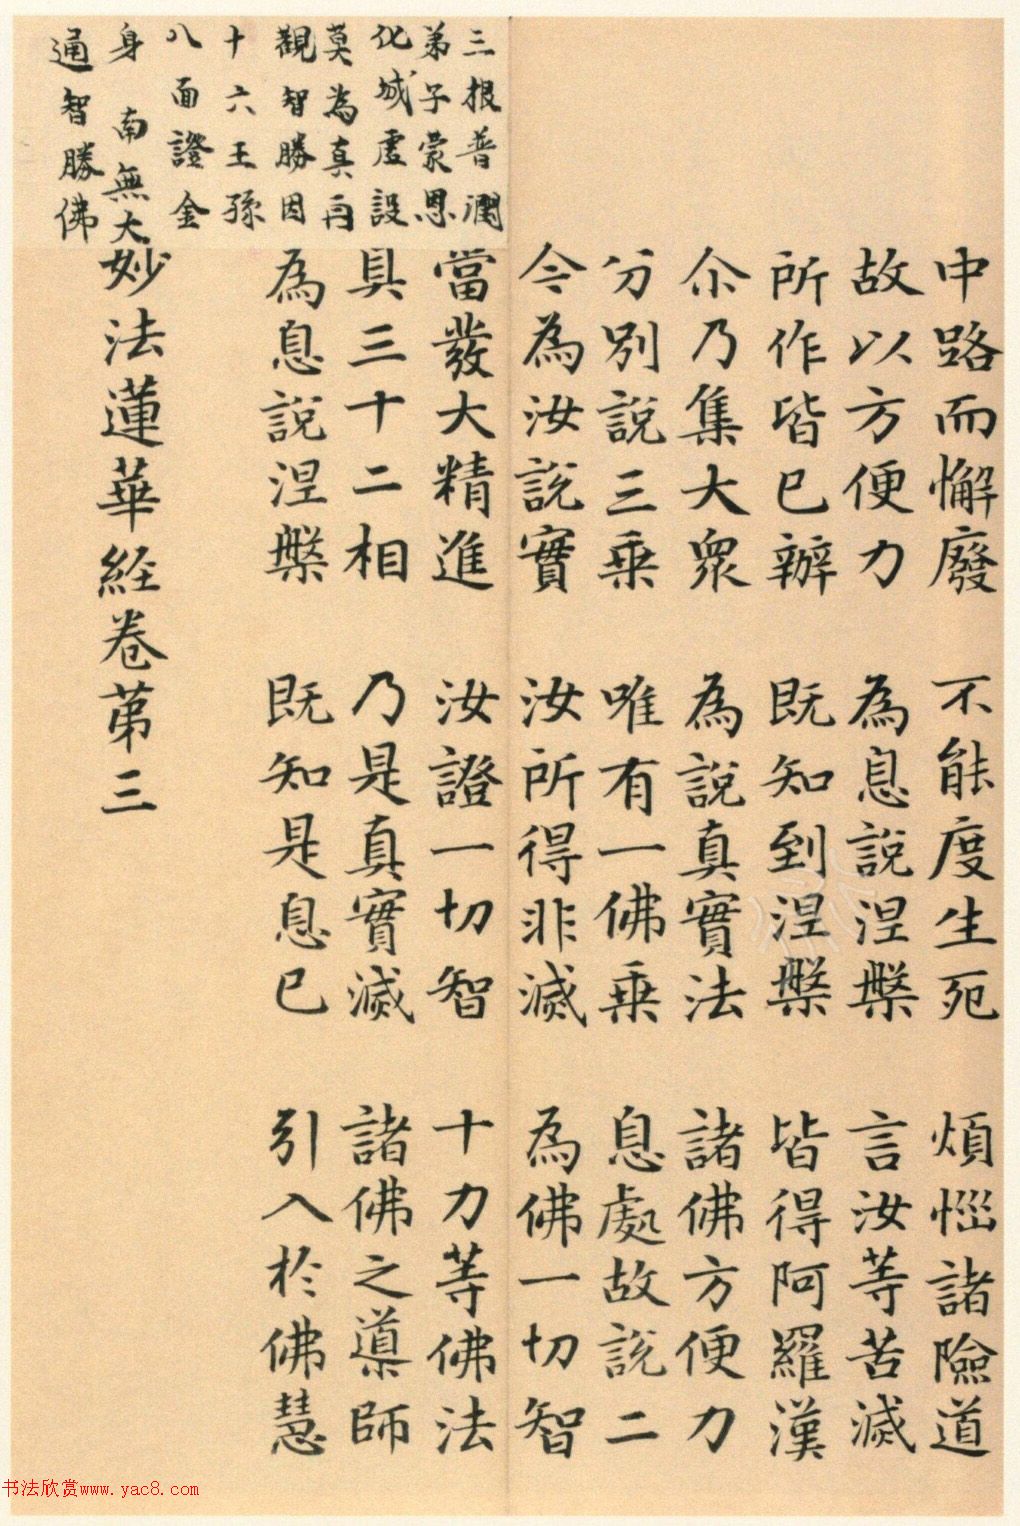 中路而懈廢　不能度生死　煩惱諸險道
故以方便力　為息說涅槃　言汝等苦滅
所作皆已辦　既知到涅槃　皆得阿羅漢
尒乃集大眾　為說真實法　諸佛方便力
分別說三乘　唯有一佛乘　息處故說二
今為汝說實　汝所得非滅　為佛一切智
當發大精進　汝證一切智　十力等佛法
具三十二相　乃是真實滅　諸佛之導師
為息說涅槃　既知是息已　引入於佛慧
妙法蓮華經卷第三
三根普潤
弟子蒙恩
化城虛設
莫為真再
觀智勝因
十六王孫
八面證金
身　南無大
通智勝佛
书法欣赏www.yac8.com